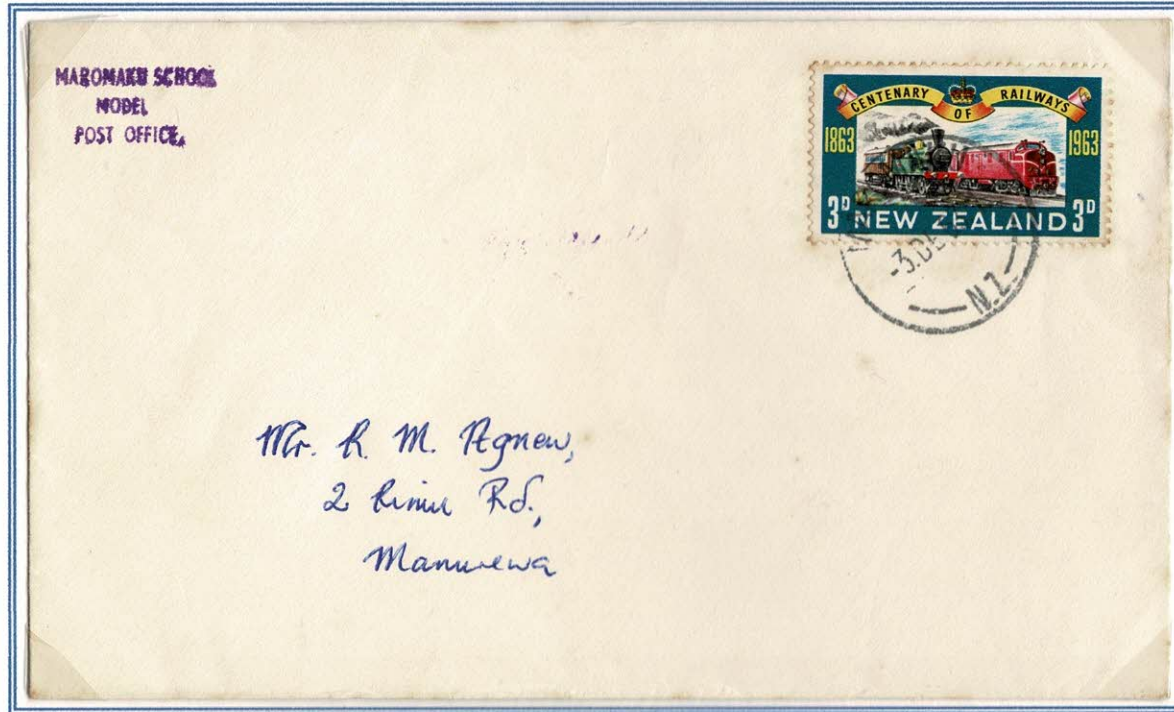 MAROMAKU SCHOOL
MODEL
POST OFFICE.
CENTENARY OF RAILWAYS
1863 1963
3D NEW ZEALAND 3D
-3.DE
N.Z.
Mr. R. M. Agnew,
2 Rd.,
Manurewa